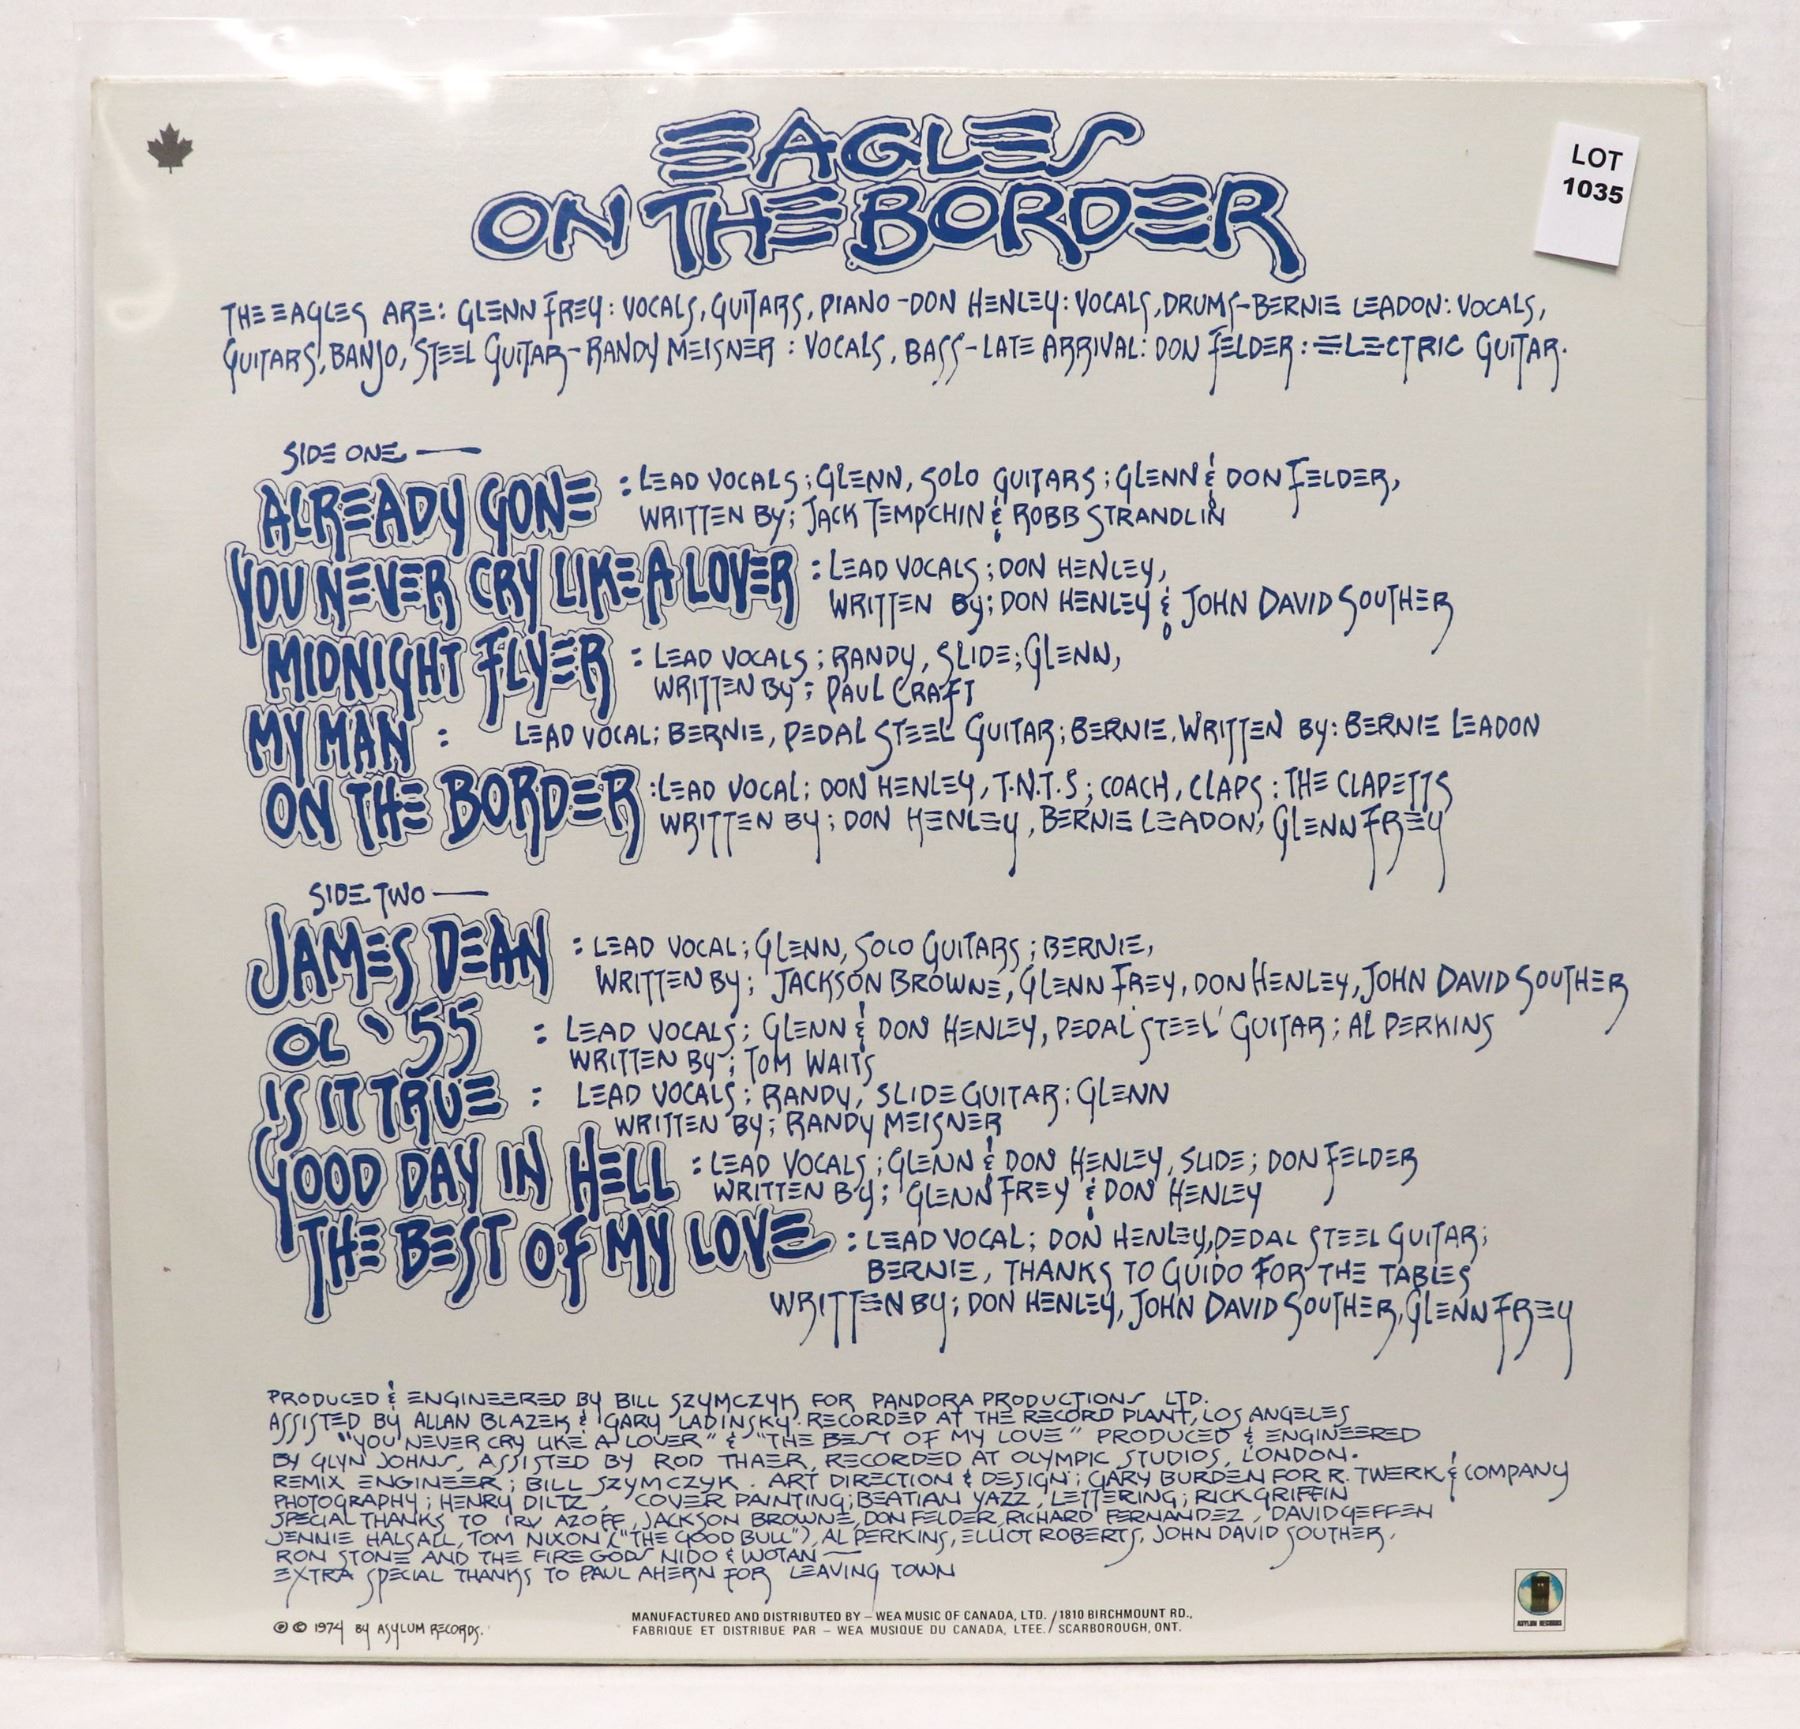 EAGLES
ON THE BORDER
LOT
1035
THE EAGLES ARE: GLENN FREY: VOCALS, GUITARS, PIANO - DON HENLEY: VOCALS, DRUMS - BERNIE LEADON: VOCALS,
GUITARS, BANJO, STEEL GUITAR - RANDY MEISNER: VOCALS, BASS - LATE ARRIVAL: DON FELDER: ELECTRIC GUITAR.
SIDE ONE —
ALREADY GONE : LEAD VOCALS; GLENN, SOLO GUITARS; GLENN & DON FELDER,
WRITTEN BY; JACK TEMPCHIN & ROBB STRANDLIN
YOU NEVER CRY LIKE A LOVER : LEAD VOCALS; DON HENLEY,
WRITTEN BY; DON HENLEY & JOHN DAVID SOUTHER
MIDNIGHT FLYER : LEAD VOCALS; RANDY, SLIDE; GLENN,
WRITTEN BY; PAUL CRAFT
MY MAN : LEAD VOCAL; BERNIE, PEDAL STEEL GUITAR; BERNIE, WRITTEN BY: BERNIE LEADON
ON THE BORDER : LEAD VOCAL; DON HENLEY, T.N.T.S; COACH, CLAPS: THE CLAPETTS
WRITTEN BY; DON HENLEY, BERNIE LEADON, GLENN FREY
SIDE TWO —
JAMES DEAN : LEAD VOCAL; GLENN, SOLO GUITARS; BERNIE,
WRITTEN BY; JACKSON BROWNE, GLENN FREY, DON HENLEY, JOHN DAVID SOUTHER
OL '55 : LEAD VOCALS; GLENN & DON HENLEY, PEDAL STEEL GUITAR; AL PERKINS
WRITTEN BY; TOM WAITS
IS IT TRUE : LEAD VOCALS; RANDY, SLIDE GUITAR: GLENN
WRITTEN BY; RANDY MEISNER
GOOD DAY IN HELL : LEAD VOCALS; GLENN & DON HENLEY, SLIDE; DON FELDER
WRITTEN BY; GLENN FREY & DON HENLEY
THE BEST OF MY LOVE : LEAD VOCAL; DON HENLEY, PEDAL STEEL GUITAR;
BERNIE, THANKS TO GUIDO FOR THE TABLES
WRITTEN BY; DON HENLEY, JOHN DAVID SOUTHER, GLENN FREY
PRODUCED & ENGINEERED BY BILL SZYMCZYK FOR PANDORA PRODUCTIONS LTD.
ASSISTED BY ALLAN BLAZEK & GARY LADINSKY. RECORDED AT THE RECORD PLANT, LOS ANGELES
"YOU NEVER CRY LIKE A LOVER" & "THE BEST OF MY LOVE" PRODUCED & ENGINEERED
BY GLYN JOHNS, ASSISTED BY ROD THAER, RECORDED AT OLYMPIC STUDIOS, LONDON.
REMIX ENGINEER; BILL SZYMCZYK. ART DIRECTION & DESIGN; GARY BURDEN FOR R. TWERK & COMPANY
PHOTOGRAPHY; HENRY DILTZ, COVER PAINTING; BEATIAN YAZZ, LETTERING; RICK GRIFFIN
SPECIAL THANKS TO IRV AZOFF, JACKSON BROWNE, DON FELDER, RICHARD FERNANDEZ, DAVID GEFFEN
JENNIE HALSALL, TOM NIXON ("THE GOOD BULL"), AL PERKINS, ELLIOT ROBERTS, JOHN DAVID SOUTHER,
RON STONE AND THE FIRE GODS NIDO & WOTAN —
EXTRA SPECIAL THANKS TO PAUL AHERN FOR LEAVING TOWN
℗ © 1974 BY ASYLUM RECORDS.
MANUFACTURED AND DISTRIBUTED BY – WEA MUSIC OF CANADA, LTD. / 1810 BIRCHMOUNT RD.,
FABRIQUE ET DISTRIBUE PAR – WEA MUSIQUE DU CANADA, LTEE. / SCARBOROUGH, ONT.
ASYLUM RECORDS